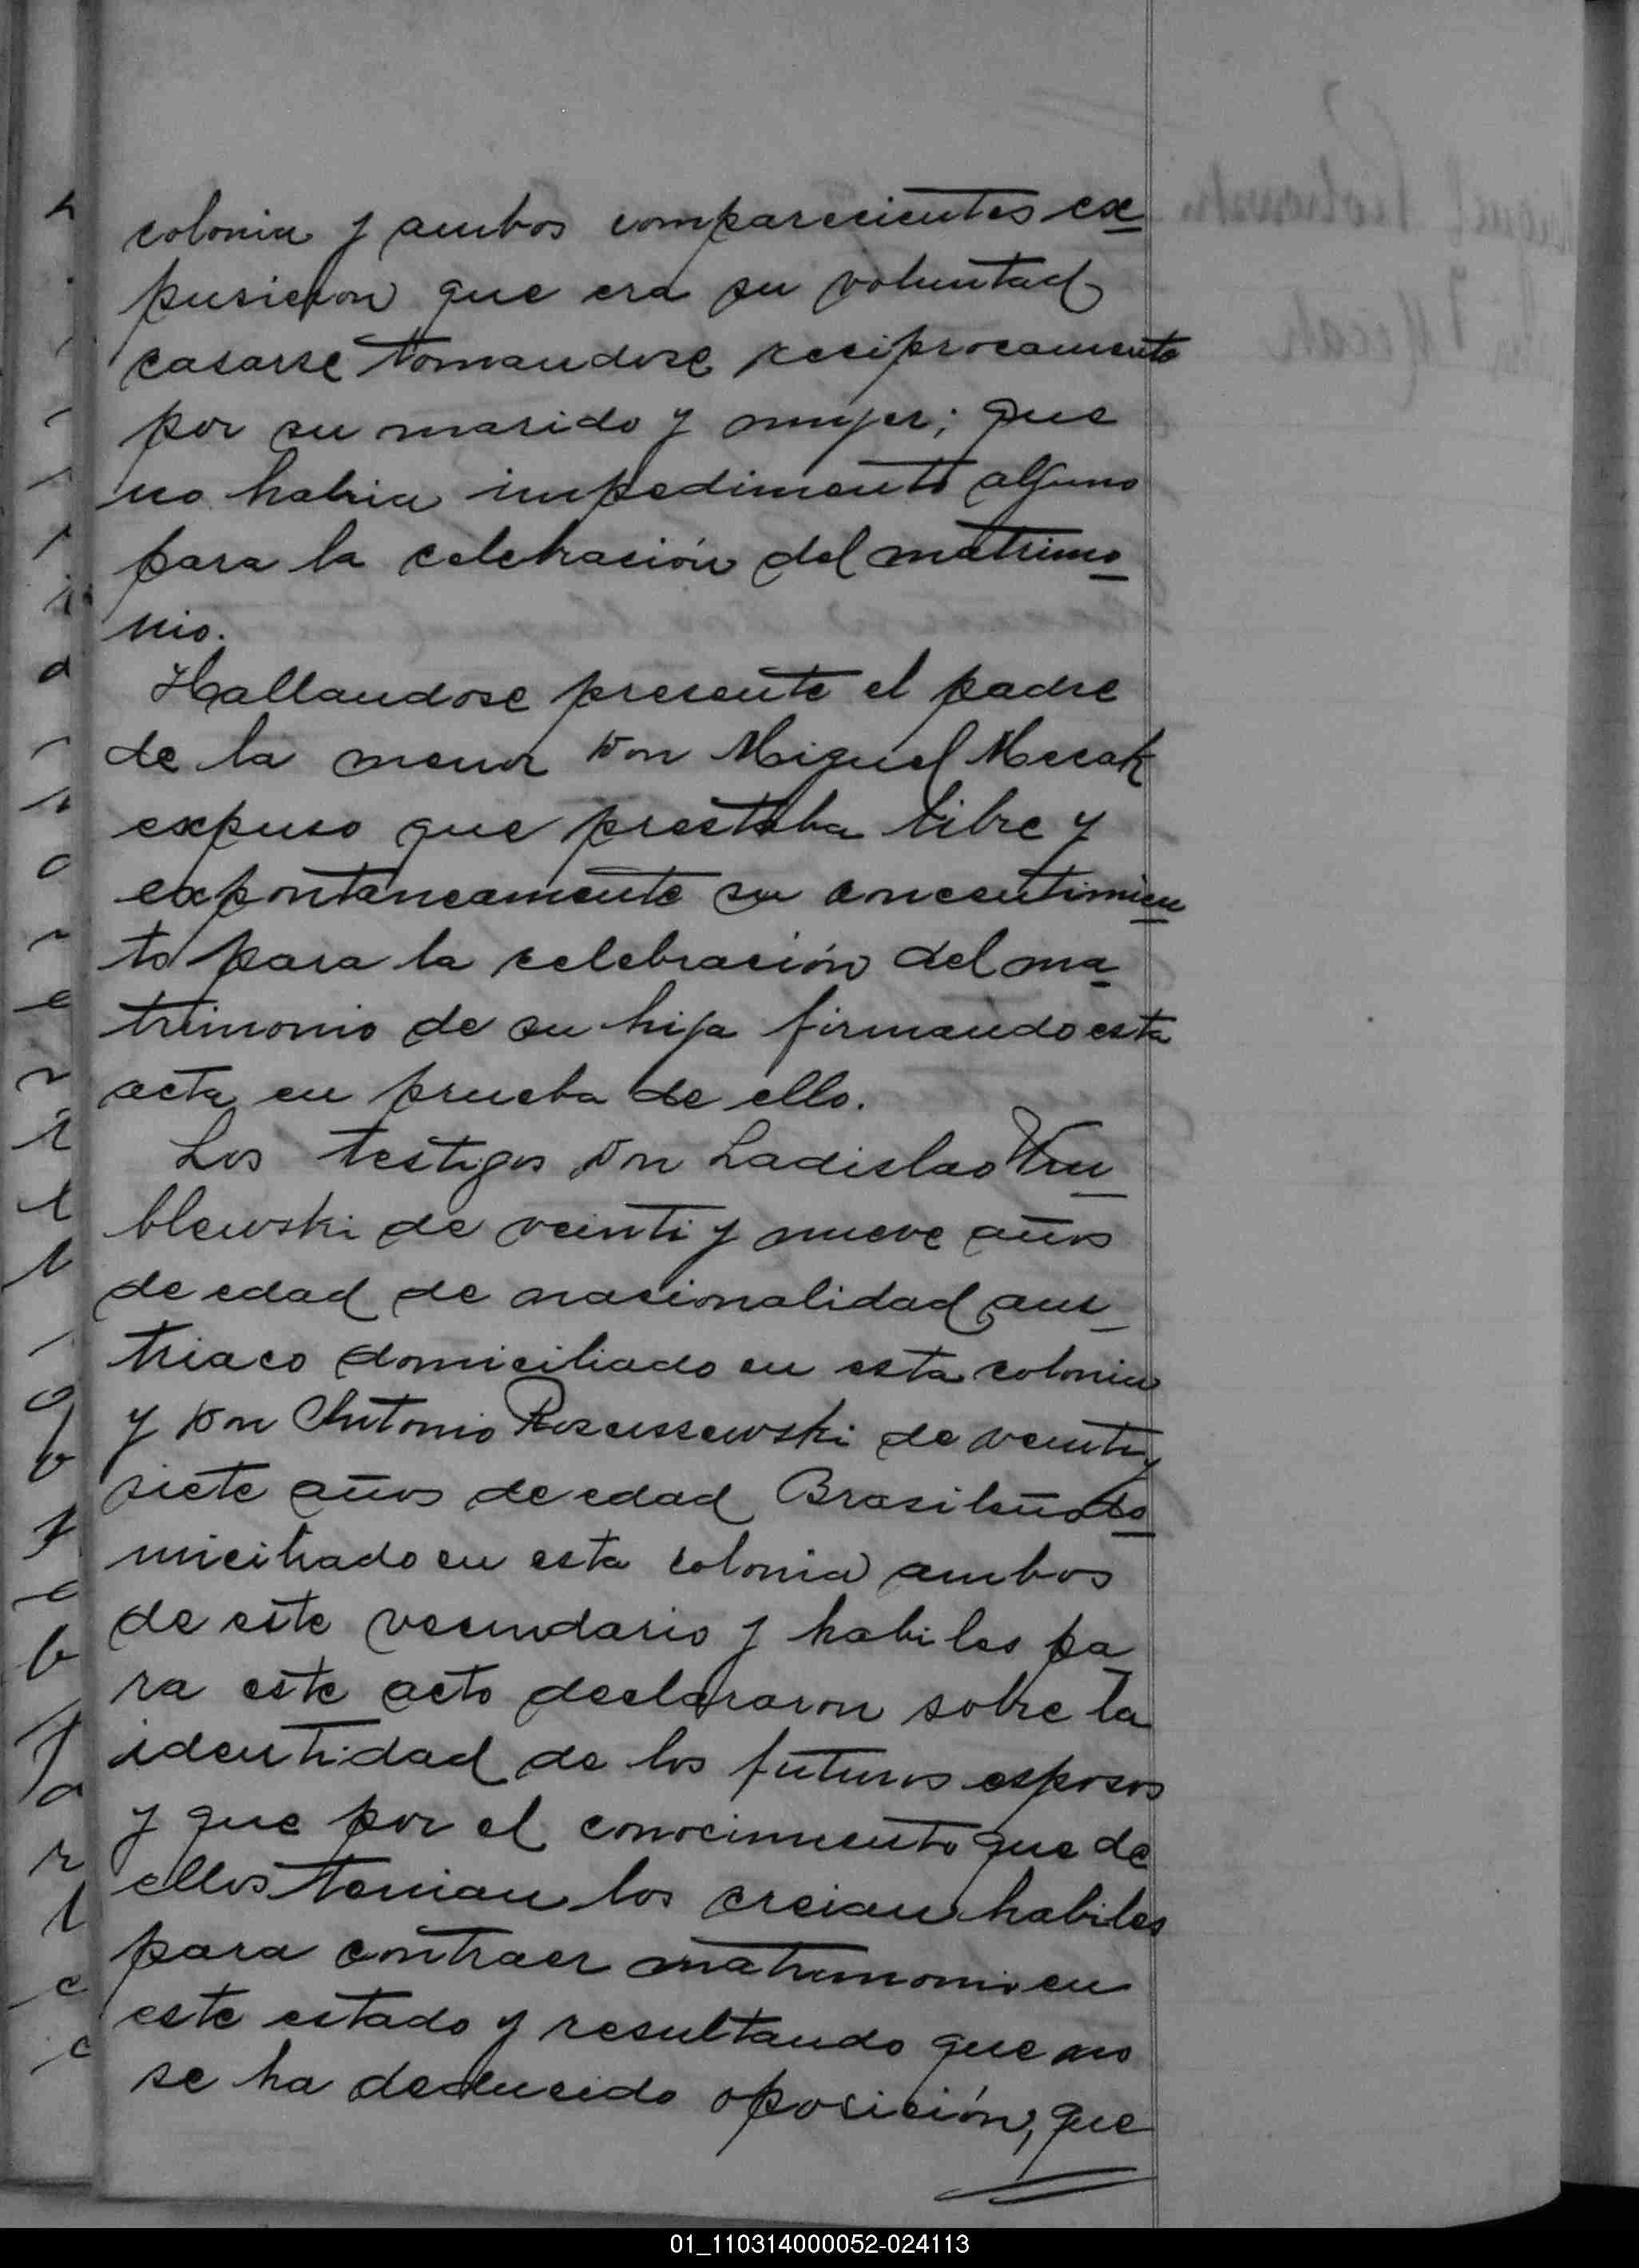 colonia y ambos comparecientes ex
pusieron que era su voluntad
casarse tomandose reciprocamente
por su marido y mujer; que
no habia impedimento alguno
para la celebrasión del matrimo
nio.
Hallandose presente el padre
de la menor Don Miguel Mecak
expuso que prestaba libre y
expontaneamente su concentimien
to para la celebrasión del ma
trimonio de su hija firmando esta
acta en prueba de ello.
Los testigos Don Ladislao Wru
blewski de veinti y nueve años
de edad de nasionalidad aus
triaco domiciliado en esta colonia
y Don Antonio de veinti y
siete años de edad Brasileño do
miciliado en esta colonia ambos
de este vecindario y habiles pa
ra este acto declararon sobre la
identidad de los futuros esposos
y que por el conocimiento que de
ellos tenian los creian habiles
para contraer matrimonio en
este estado y resultando que no
se ha deducido oposición, que
01_110314000052-024113